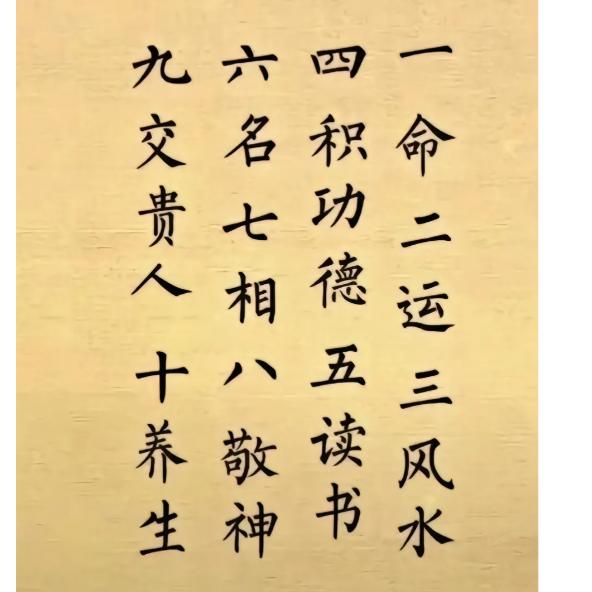 一命二运三风水
四积功德五读书
六名七相八敬神
九交贵人十养生